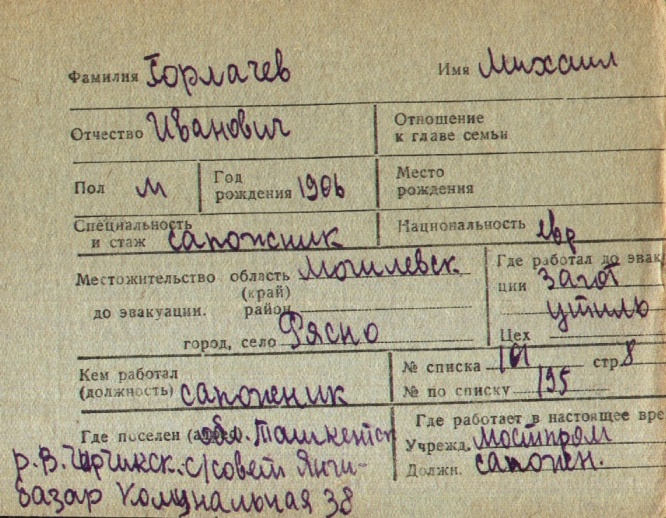 Фамилия Горлачев Имя Михаил
Отчество Иванович Отношение
к главе семьи
Пол м Год
рождения 1906 Место
рождения
Специальность
и стаж сапожник Национальность евр
Местожительство область Могилевск
(край)
до эвакуации. район
город, село Рясно
Где работал до эвак
ции Загот
утиль
Цех
Кем работал
(должность) сапожник
№ списка 101 стр 8
№ по списку 195
Где поселен обл. Ташкентск
р. В. Чирчикск. с/совет Янги-
базар Комунальная 38
Где работает в настоящее вре
Учрежд. Местпром
Должн. сапожн.